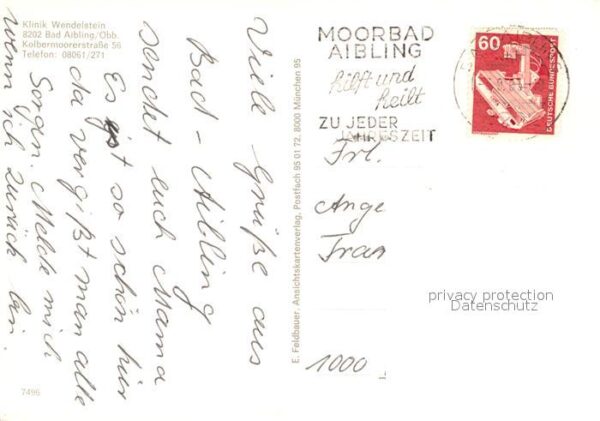 Klinik Wendelstein
8202 Bad Aibling/Obb.
Kolbermoorerstraße 56
Telefon: 08061/271
Viele Grüße aus
Bad-Aibling
sendet euch Mama
Es ist so schön hier
da vergißt man alle
Sorgen. Melde mich
wenn ich zurück bin.
7496
E. Feldbauer, Ansichtskartenverlag, Postfach 95 01 72, 8000 München 95
MOORBAD
AIBLING
hilft und
heilt
ZU JEDER
JAHRESZEIT
60
DEUTSCHE BUNDESPOST
Frl.
Ange
Fran
1000
privacy protection
Datenschutz